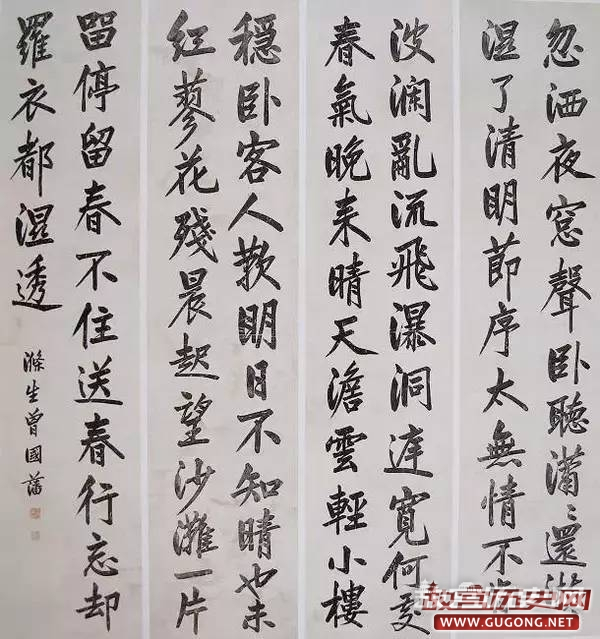 忽洒夜窓聲卧聽瀟〻還淅
濕了清明節序太無情不肯
波瀾亂流飛瀑洞庭寬何處
春氣晚来晴天澹雲輕小樓
穩卧客人歎明日不知晴也未
紅蓼花殘晨起望沙灘一片
留停留春不住送春行忘却
羅衣都濕透
滌生曾國藩
故宫历史网
WWW.GUGONG.NET